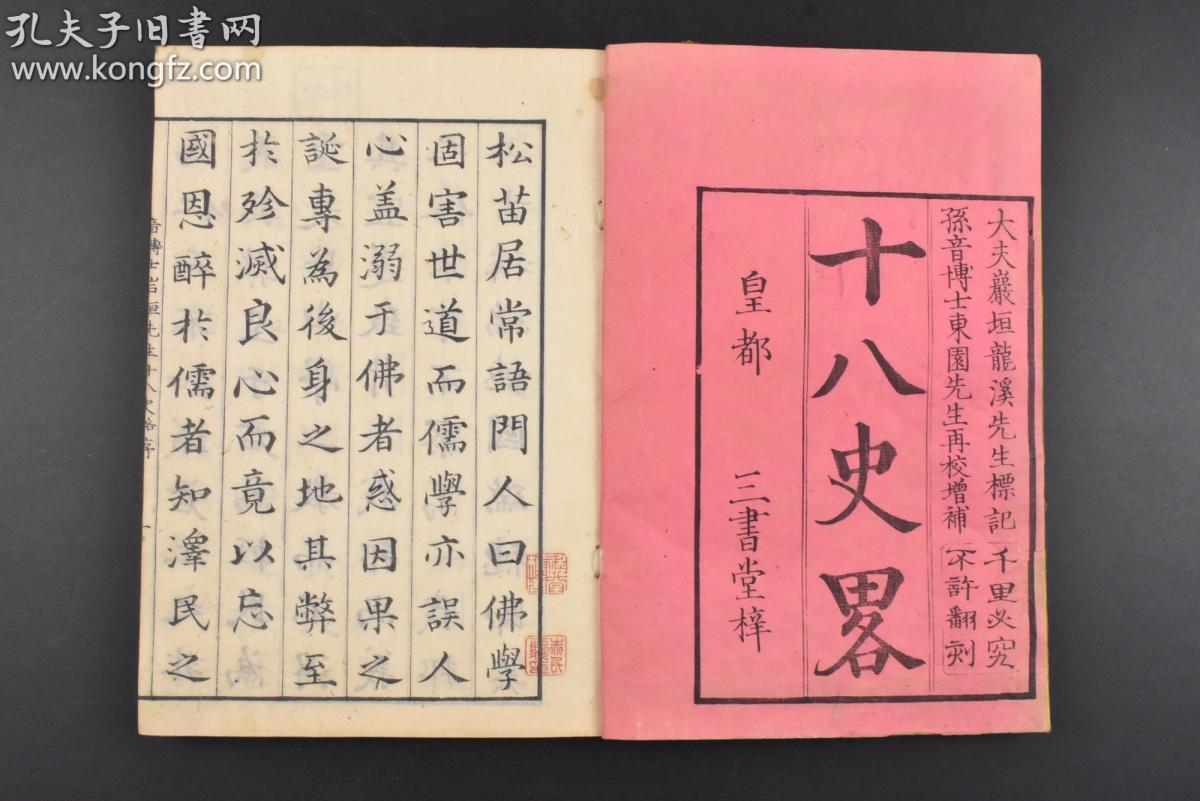 孔夫子旧书网
www.kongfz.com
大夫巖垣龍溪先生標記
孫音博士東園先生再校增補
千里必究
不許翻刻
十八史畧
皇都 三書堂梓
松苗居常語門人曰佛學
固害世道而儒學亦誤人
心盖溺于佛者惑因果之
誕專為後身之地其弊至
於殄滅良心而竟以忘
國恩醉於儒者知澤民之
音博士岩垣先生十八史略序 一